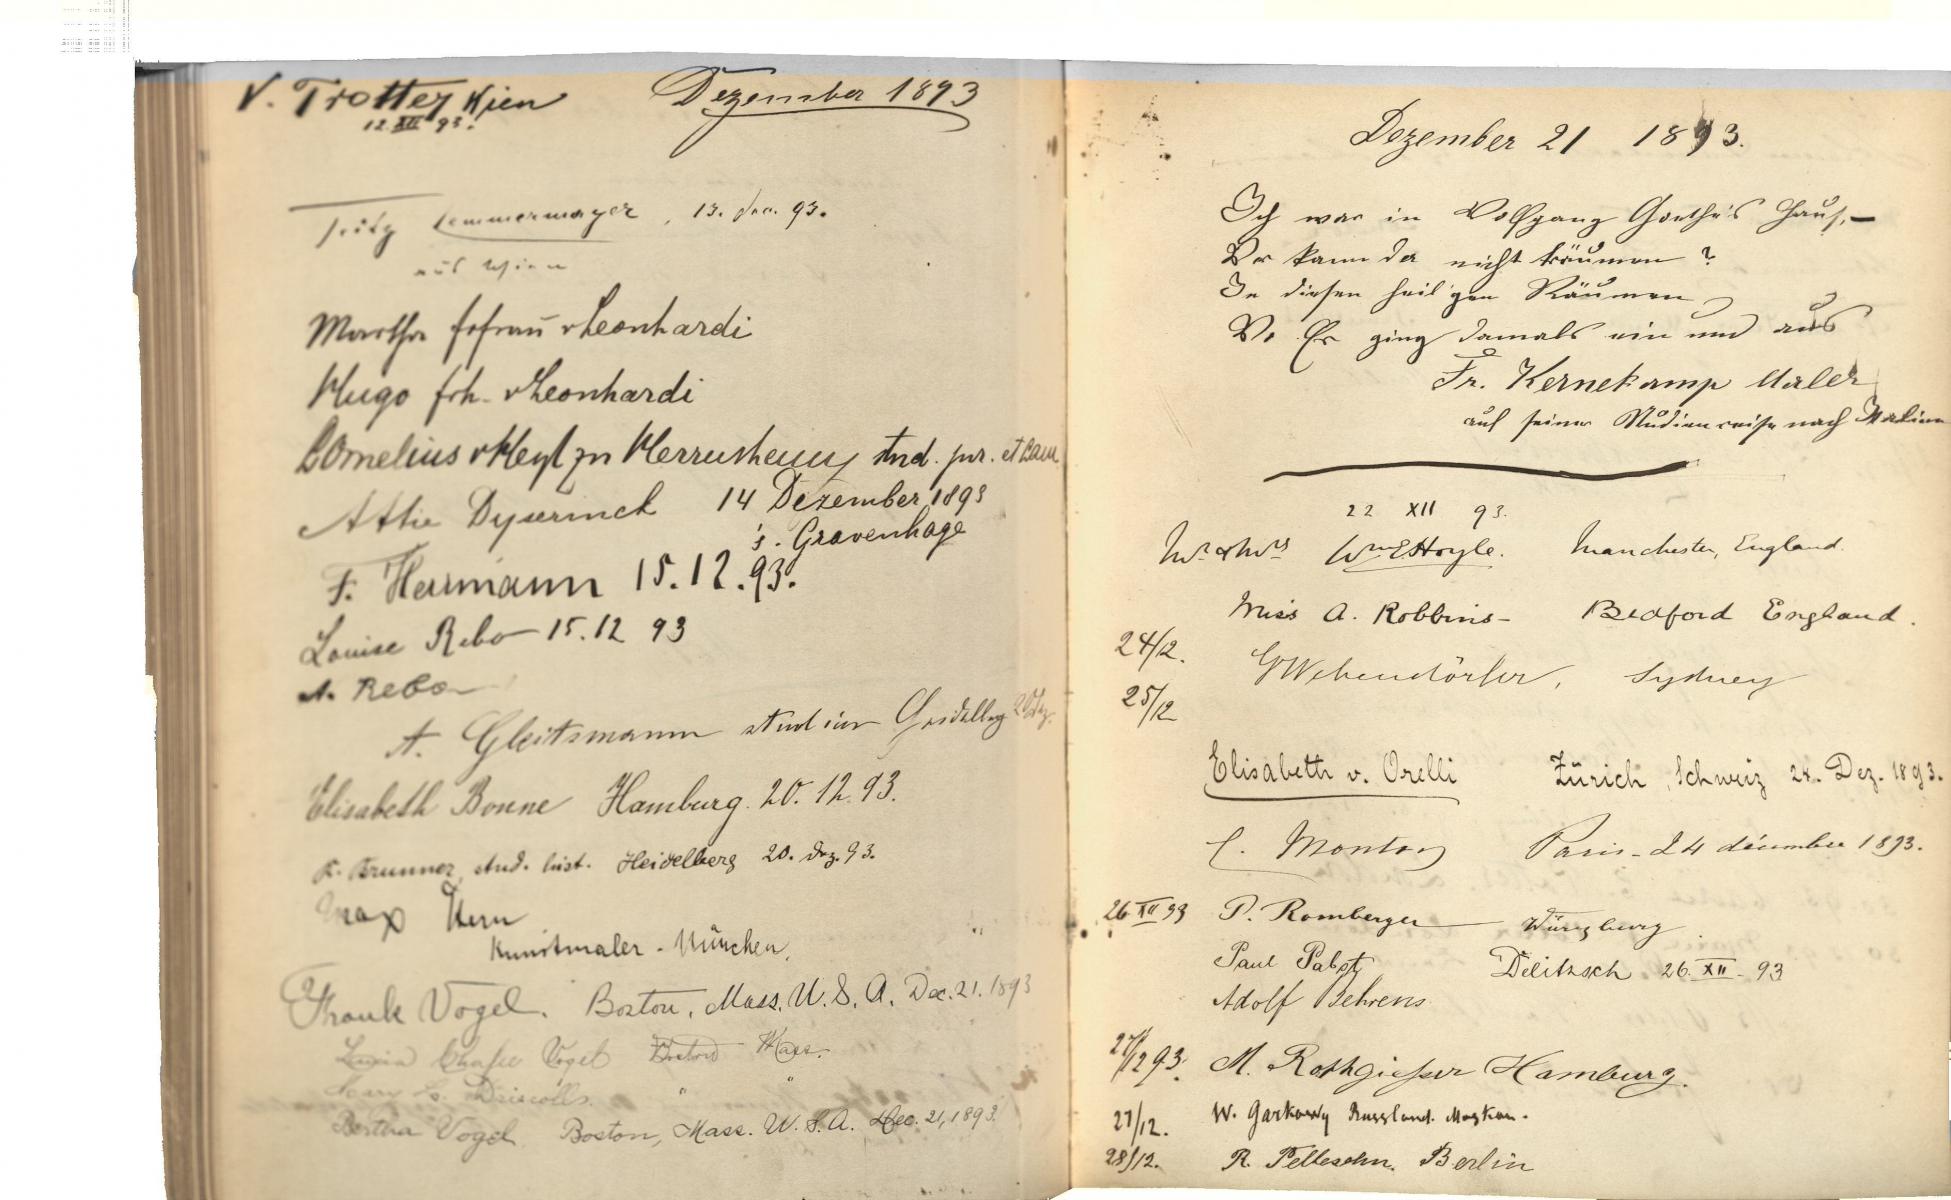 V. Trotter Wien
12. XII 93.
Dezember 1893
Fritz Lemmermayer, 13. Dec. 93.
aus Wien
Martha frfrau v Leonhardi
Hugo frh. v Leonhardi
Cornelius v Heyl zu Herrnsheim stud. jur. et cam
Attie Dyserinck 14 Dezember 1893
's. Gravenhage
F. Herrmann 15.12.93.
Louise Rebo 15.12 93
A. Rebo
A. Gleitsmann stud iur Heidelbg 20 Dez.
Elisabeth Bonne Hamburg. 20. 12. 93.
K. Brunner, stud. hist. Heidelberg 20. Dez. 93.
Max Kern
Kunstmaler - München.
Frank Vogel. Boston, Mass. U. S. A. Dec. 21. 1893
Chafee Vogel Boston Mass.
Mary L. Driscoll
Bertha Vogel Boston, Mass. U. S. A. Dec. 21, 1893.
Dezember 21 1893.
Ich war in Wolfgang Goethe's Haus, –
Wer kann da nicht träumen?
In diesen heil'gen Räumen
Wo Er ging damals ein und aus
Fr. Kernekamp Maler
auf seiner Studienreise nach Italien
22 XII 93.
Mr & Mrs Wm E. Hoyle. Manchester, England.
Miss A. Robbins - Bedford England.
24/12.
G Webendörfer, Sydney
25/12
Elisabeth v. Orelli Zürich, Schweiz 24. Dez. 1893.
Paris - 24 décembre 1893.
26 XII 93 P. Romberger Würzburg
Paul Pabst Delitzsch 26. XII - 93
Adolf Behrens
27/12 93. M. Rothgiesser Hamburg.
27/12. W. Garkowy Russland. Moskau.
28/12. R. Peltesohn. Berlin